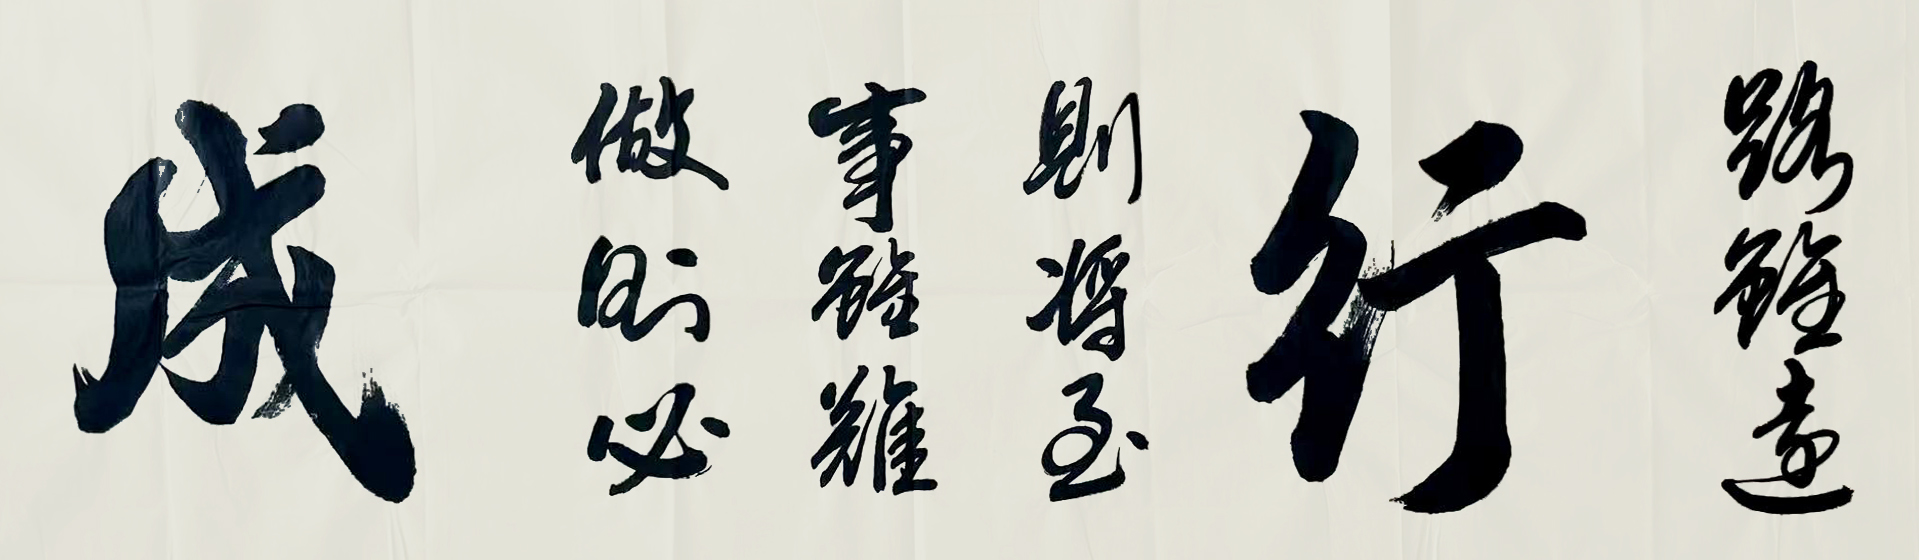 路雖遠
行
則将至
事雖難
做則必
成